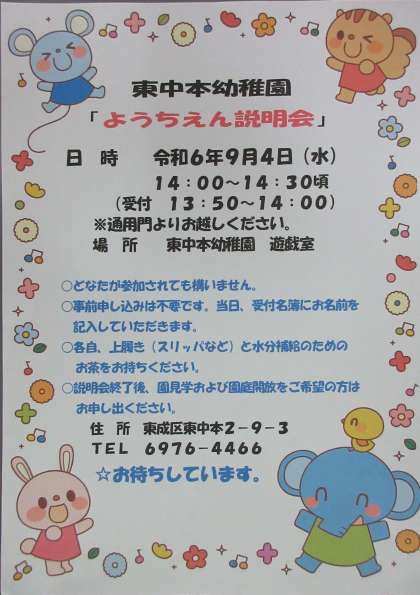 東中本幼稚園
「ようちえん説明会」
日 時 令和6年9月4日（水）
14：00～14：30頃
（受付 13：50～14：00）
※通用門よりお越しください。
場 所 東中本幼稚園 遊戯室
○どなたが参加されても構いません。
○事前申し込みは不要です。当日、受付名簿にお名前を
記入していただきます。
○各自、上履き（スリッパなど）と水分補給のための
お茶をお持ちください。
○説明会終了後、園見学および園庭開放をご希望の方は
お申し出ください。
住 所 東成区東中本2－9－3
TEL 6976－4466
☆お待ちしています。